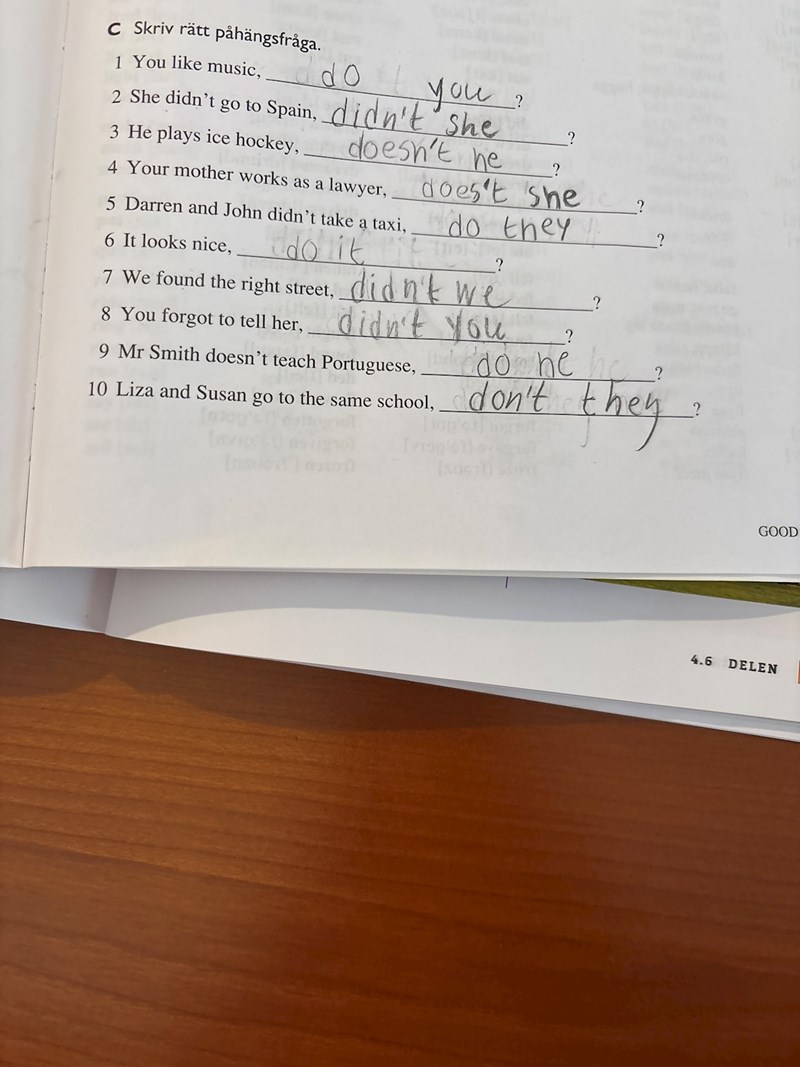 C Skriv rätt påhängsfråga.
1 You like music, do you ?
2 She didn't go to Spain, didn't she ?
3 He plays ice hockey, doesn't he ?
4 Your mother works as a lawyer, does't she ?
5 Darren and John didn't take a taxi, do they ?
6 It looks nice, do it ?
7 We found the right street, didn't we ?
8 You forgot to tell her, didn't you ?
9 Mr Smith doesn't teach Portuguese, do he ?
10 Liza and Susan go to the same school, don't they ?
GOOD
4.6 DELEN